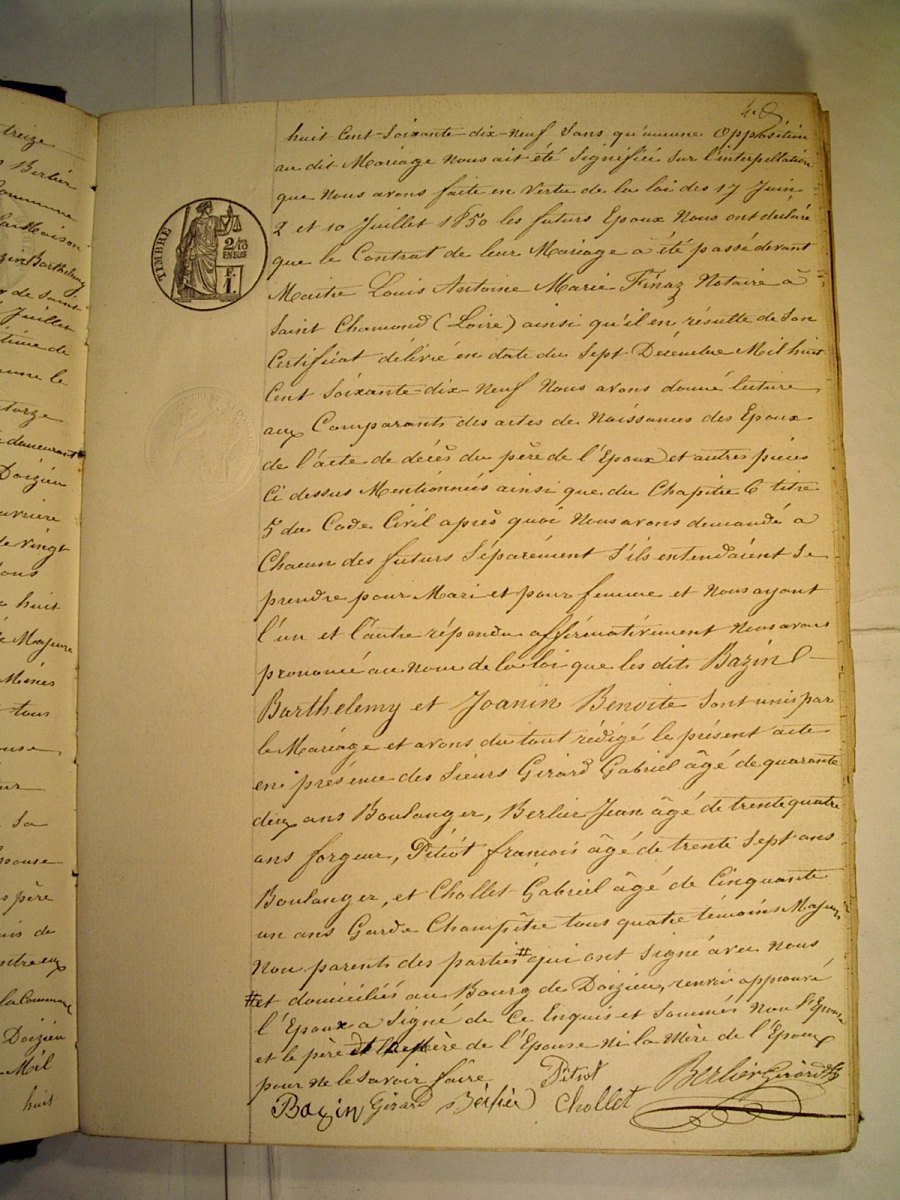 treize
Berlier
Commune
la Maison
Bazin Barthelemy
de Saint
Juillet
time de
une le
torze
demeurant
Doizieu
uvrière
de vingt
ous
huit
Majeure
Mines
tous
ouse
eur
Sa
pouse
père
uis de
entre eux
la Commune
Doizieu
Mil
huit
huit Cent Soixante dix-neuf Sans qu'aucune Opposition
au dit Mariage Nous ait été Signifiée Sur l'interpellation
que Nous avons faite en Vertu de la loi des 17 Juin
2 et 10 Juillet 1850 les futurs Epoux Nous ont déclaré
que le Contrat de leur Mariage a été passé devant
Maitre Louis Antoine Marie Finaz Notaire à
Saint Chamond (Loire) ainsi qu'il en résulte de Son
Certificat délivré en date du Sept Décembre Mil huit
Cent Soixante-dix-Neuf Nous avons donné lecture
aux Comparants des actes de Naissances des Epoux
de l'acte de décès du père de l'Epoux et autres pièces
Ci dessus Mentionnées ainsi que du Chapitre 6 titre
5 du Code Civil après quoi Nous avons demandé à
Chacun des futurs Séparément S'ils entendaient Se
prendre pour Mari et pour femme et Nous ayant
l'un et l'autre répondu affirmativement Nous avons
prononcé au Nom de la loi que les dits Bazin
Barthelemy et Joanin Benoite Sont unis par
le Mariage et avons du tout rédigé le présent acte
en présence des Sieurs Girard Gabriel âgé de quarante
deux ans Boulanger, Berlier Jean âgé de trente quatre
ans forgeur, Pitiot françois âgé de trente Sept ans
Boulanger, et Chollet Gabriel âgé de Cinquante
un ans Garde Champêtre tous quatre témoins Majeurs
Non parents des parties # qui ont Signé avec Nous
# et domiciliés au Bourg de Doizieu, renvoi approuvé
l'Epoux a Signé de Ce Enquis et Sommés Non l'Epouse
et le père et la mère de l'Epouse Ni la Mère de l'Epoux
pour Ne le Savoir faire
Pitiot
Berlier Girard
Bazin Girard Berlier Chollet
TIMBRE
2/10
EN SUS
F.
1.